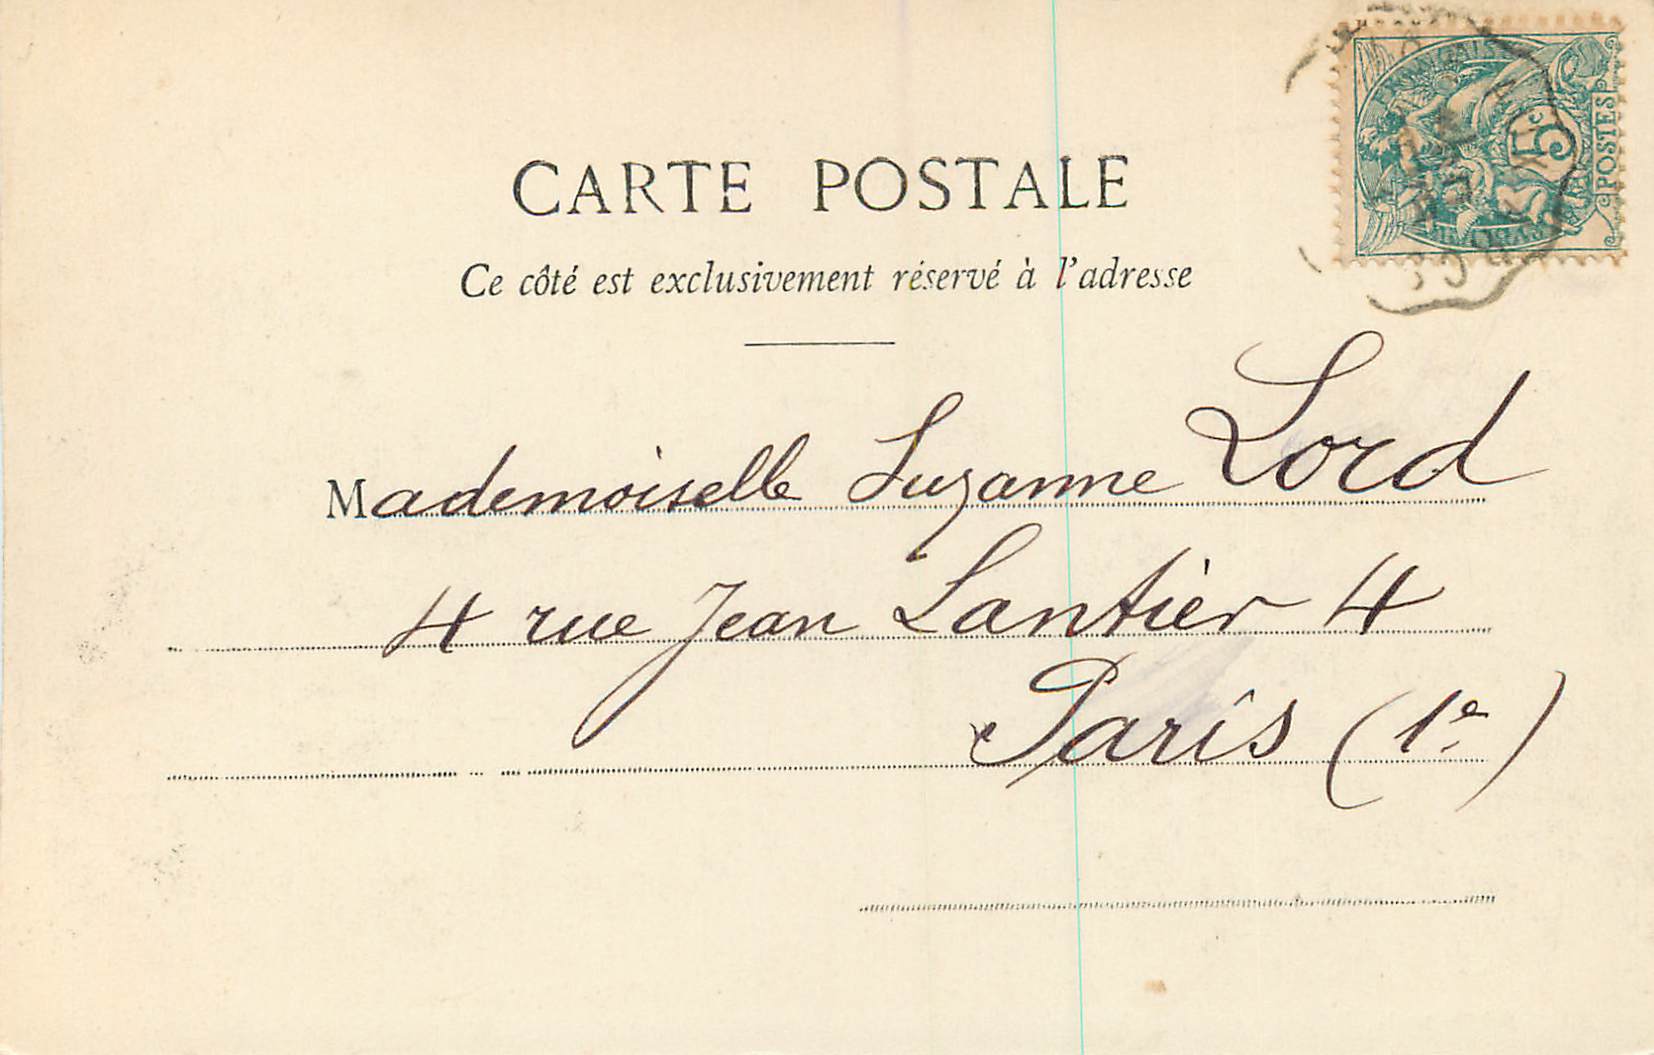 CARTE POSTALE
Ce côté est exclusivement réservé à l'adresse
5c
POSTES
Mademoiselle Suzanne Lord
4 rue Jean Lantier 4
Paris (1e)